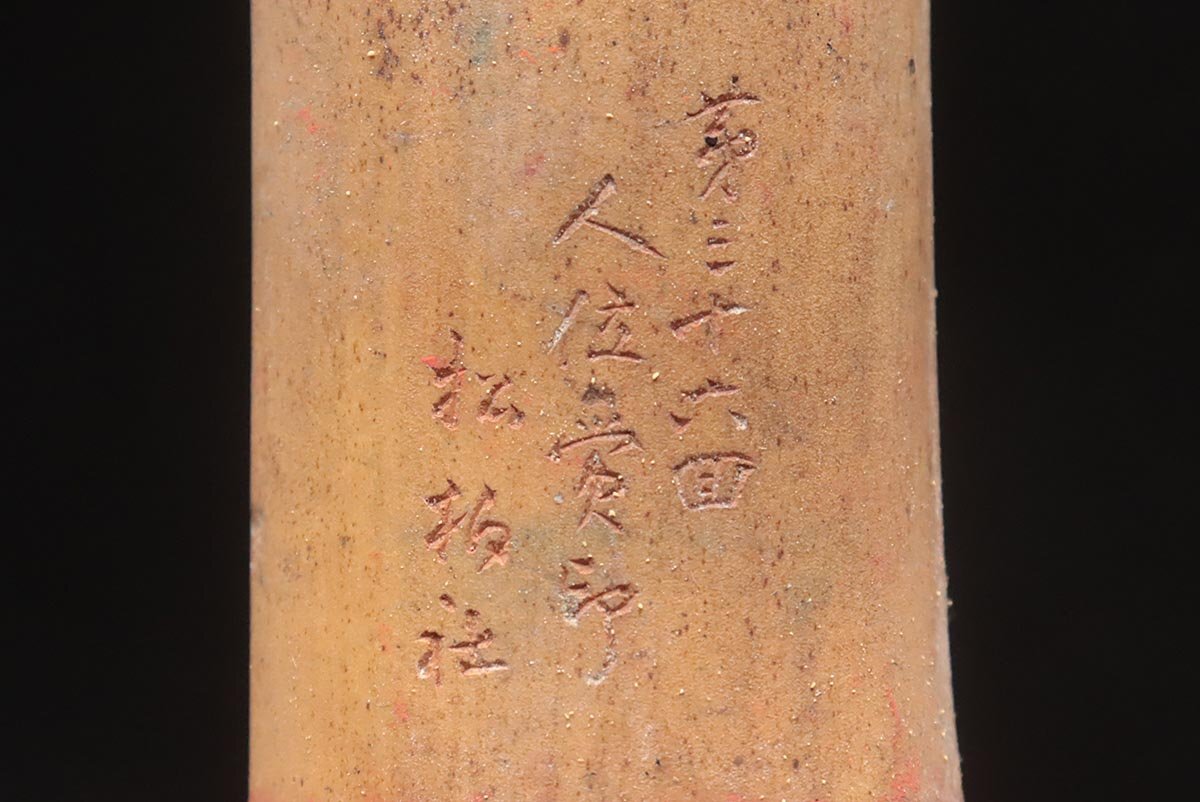 第三十六回
人位賞印
松柏社